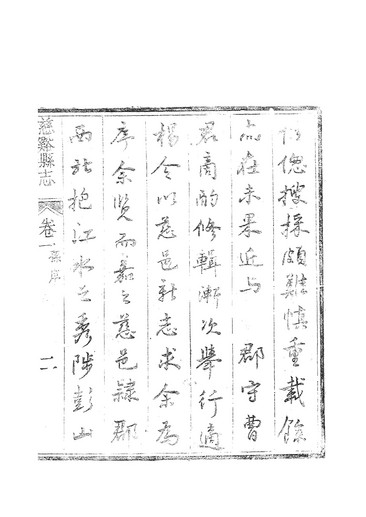 倥傯搜採頗難慎重載餘
尚在未果近與　郡守曹
君商酌修輯漸次舉行適
楊令以慈邑新志求余為
序余覽而嘉之慈邑隸郡
西北抱江水之秀陟彭山
慈谿縣志　卷一　舊序　二